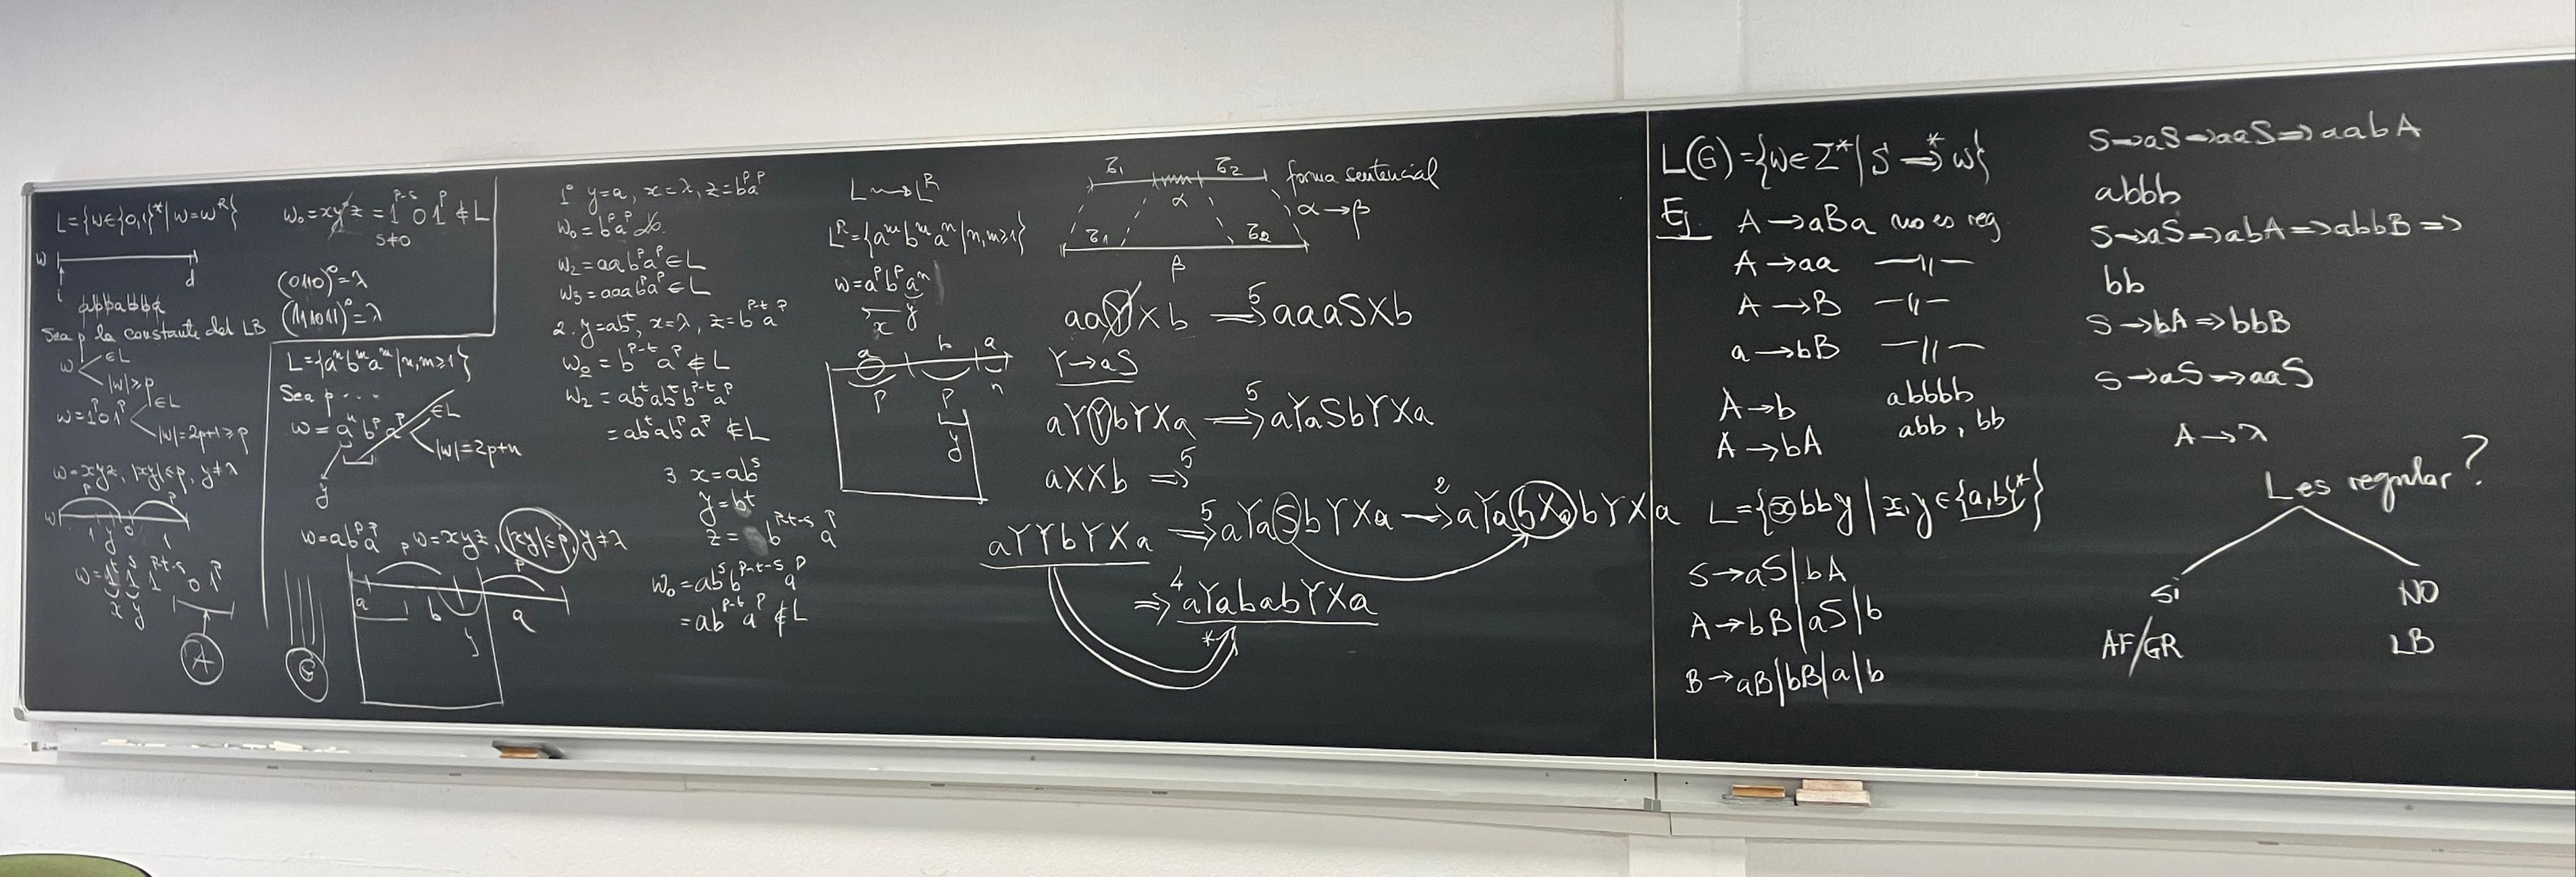 L={w∈{0,1}*|w=w^R}
w
i
d
abbbabbba
Sea p la constante del LB
w
∈L
|w|≥p
w=1^p 0 1^p
∈L
|w|=2p+1≥p
w=xyz, |xy|≤p, y≠λ
p p
w
1 y 0 1
w=1^t 1^s 1^{p-t-s} 0 1^p
x y
A
w₀=xy⁰z=1^{p-s} 0 1^p ∉L
s≠0
(0110)⁰=λ
(111011)⁰=λ
L={a^n b^m a^m|n,m≥1}
Sea p...
w=a^n b^p a^p
∈L
|w|=2p+n
y
w=ab^p a^p, w=xyz, |xy|≤p, y≠λ
p
a b a
y
G
1º y=a, x=λ, z=b^p a^p
w₀=b^p a^p
w₂=aab^p a^p∈L
w₃=aaab^p a^p∈L
2. y=ab^t, x=λ, z=b^{p-t} a^p
w₀=b^{p-t} a^p ∉L
w₂=ab^t ab^t b^{p-t} a^p
=ab^t ab^p a^p ∉L
3. x=ab^s
y=b^t
z= b^{p-t-s} a^p
w₀=ab^s b^{p-t-s} a^p
=ab^{p-t} a^p ∉L
L⇝L^R
L^R={a^m b^m a^n|n,m≥1}
w=a^p b^p a^n
x y
a b a
p p n
y
Z₁ Z₂ forma sentencial
α
α→β
Z₁ Z₂
β
aaYXb ⇒⁵ aaaSXb
Y→aS
aYYbYXa ⇒⁵ aYaSbYXa
aXXb ⇒⁵
aYYbYXa ⇒⁵ aYaSbYXa ⇒² aYabXabYXa
⇒⁴ aYababYXa
*
L(G)={w∈Σ*|S⇒* w}
Ej. A→aBa no es reg.
A→aa —||—
A→B —||—
a→bB —||—
A→b
A→bA
abbbb
abb, bb
L={xbby|x,y∈{a,b}*}
S→aS|bA
A→bB|aS|b
B→aB|bB|a|b
S⇒aS⇒aaS⇒aabA
abbb
S⇒aS⇒abA⇒abbB⇒
bb
S⇒bA⇒bbB
S⇒aS⇒aaS
A→λ
L es regular?
Sí NO
AF/GR LB